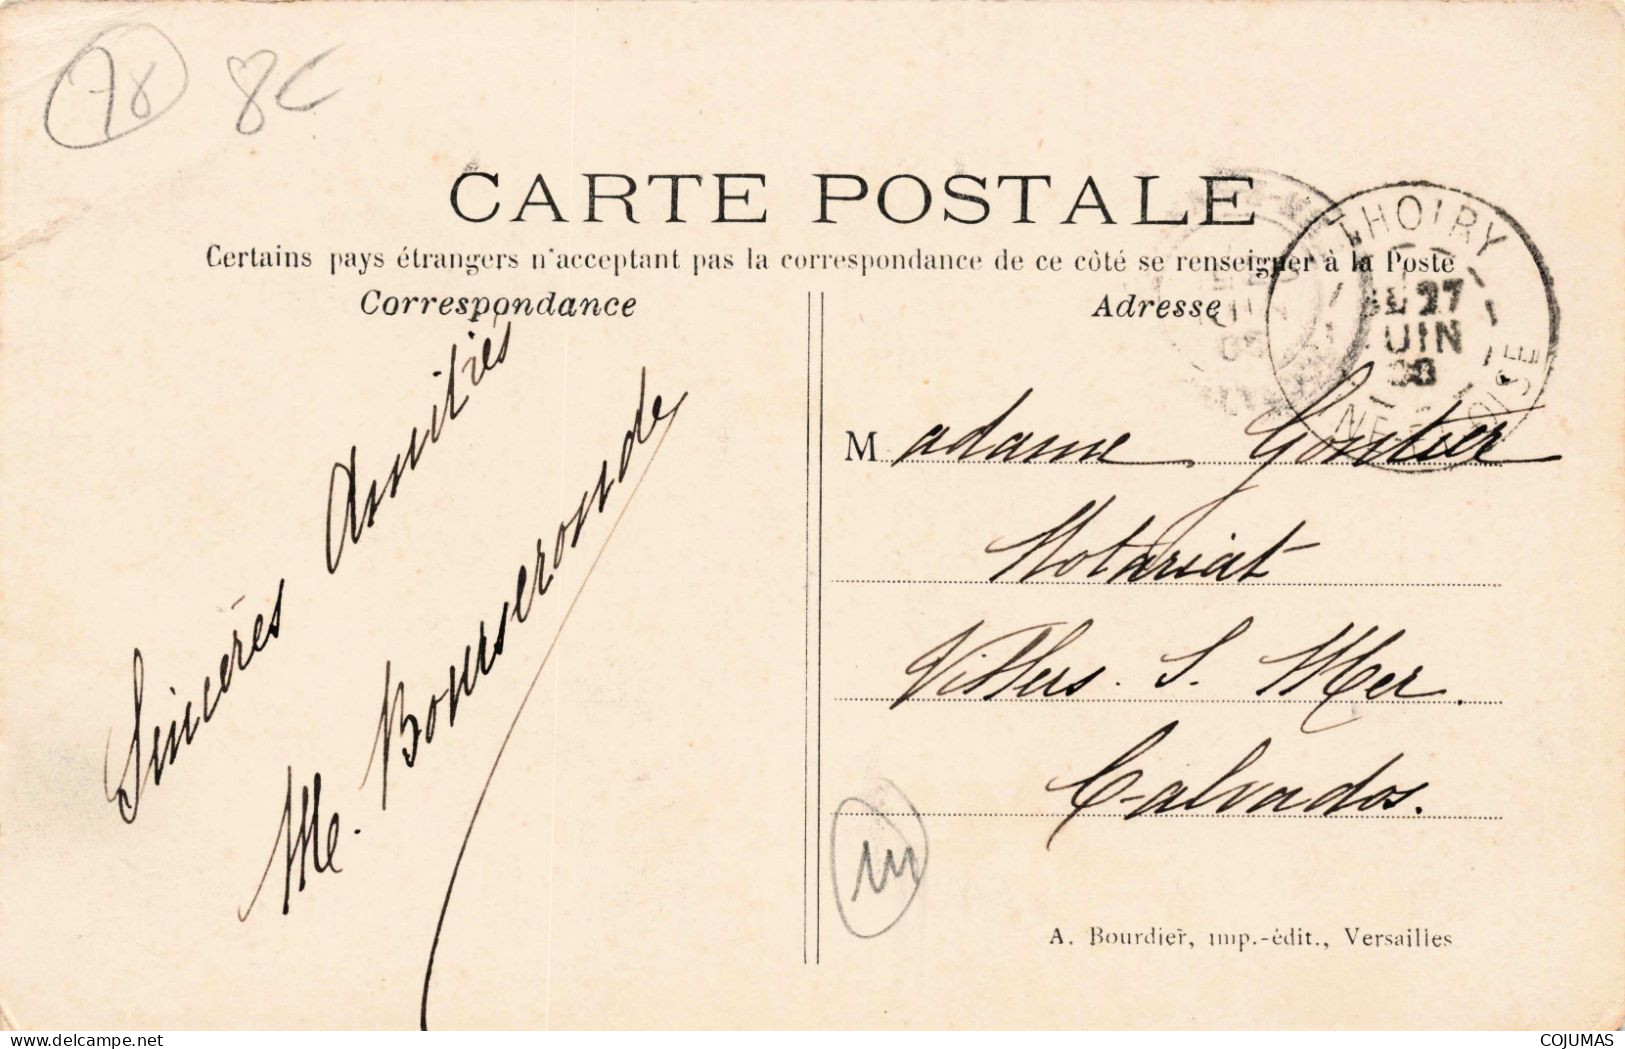 78 8€
CARTE POSTALE
Certains pays étrangers n'acceptant pas la correspondance de ce côté se renseigner à la Poste
Correspondance
Adresse
THOIRY
27
JUIN
08
SEINE-ET-OISE
Sincères Amitiés
Me. Bourseronde
Madame Gontier
Notariat
Villers. S. Mer.
Calvados.
A. Bourdier, imp.-édit., Versailles
COJUMAS
delcampe.net